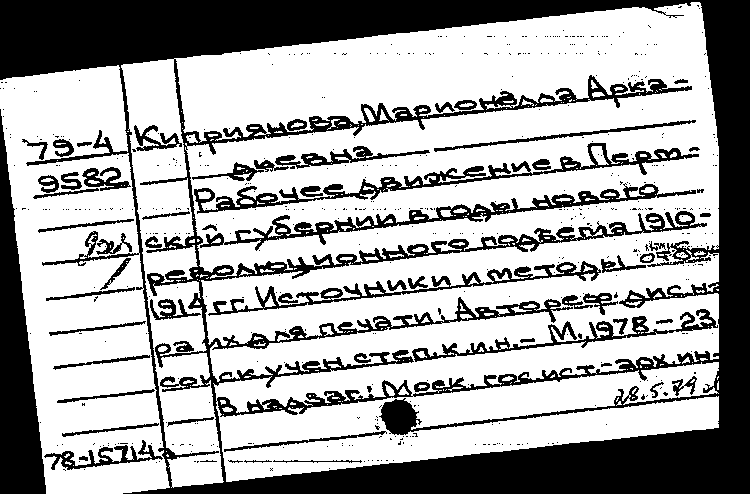 79-4 Киприянова, Марионелла Арка-
9582 диевна.
Рабочее движение в Перм-
ской губернии в годы нового
революционного подъема 1910-
1914 гг. Источники и методы
ра их для печати: Автореф. дис. на
соиск. учен. степ. к.и.н. - М., 1978. - 23
В надзаг.: Моск. гос. ист.-арх. ин-
28.5.79
78-15714а